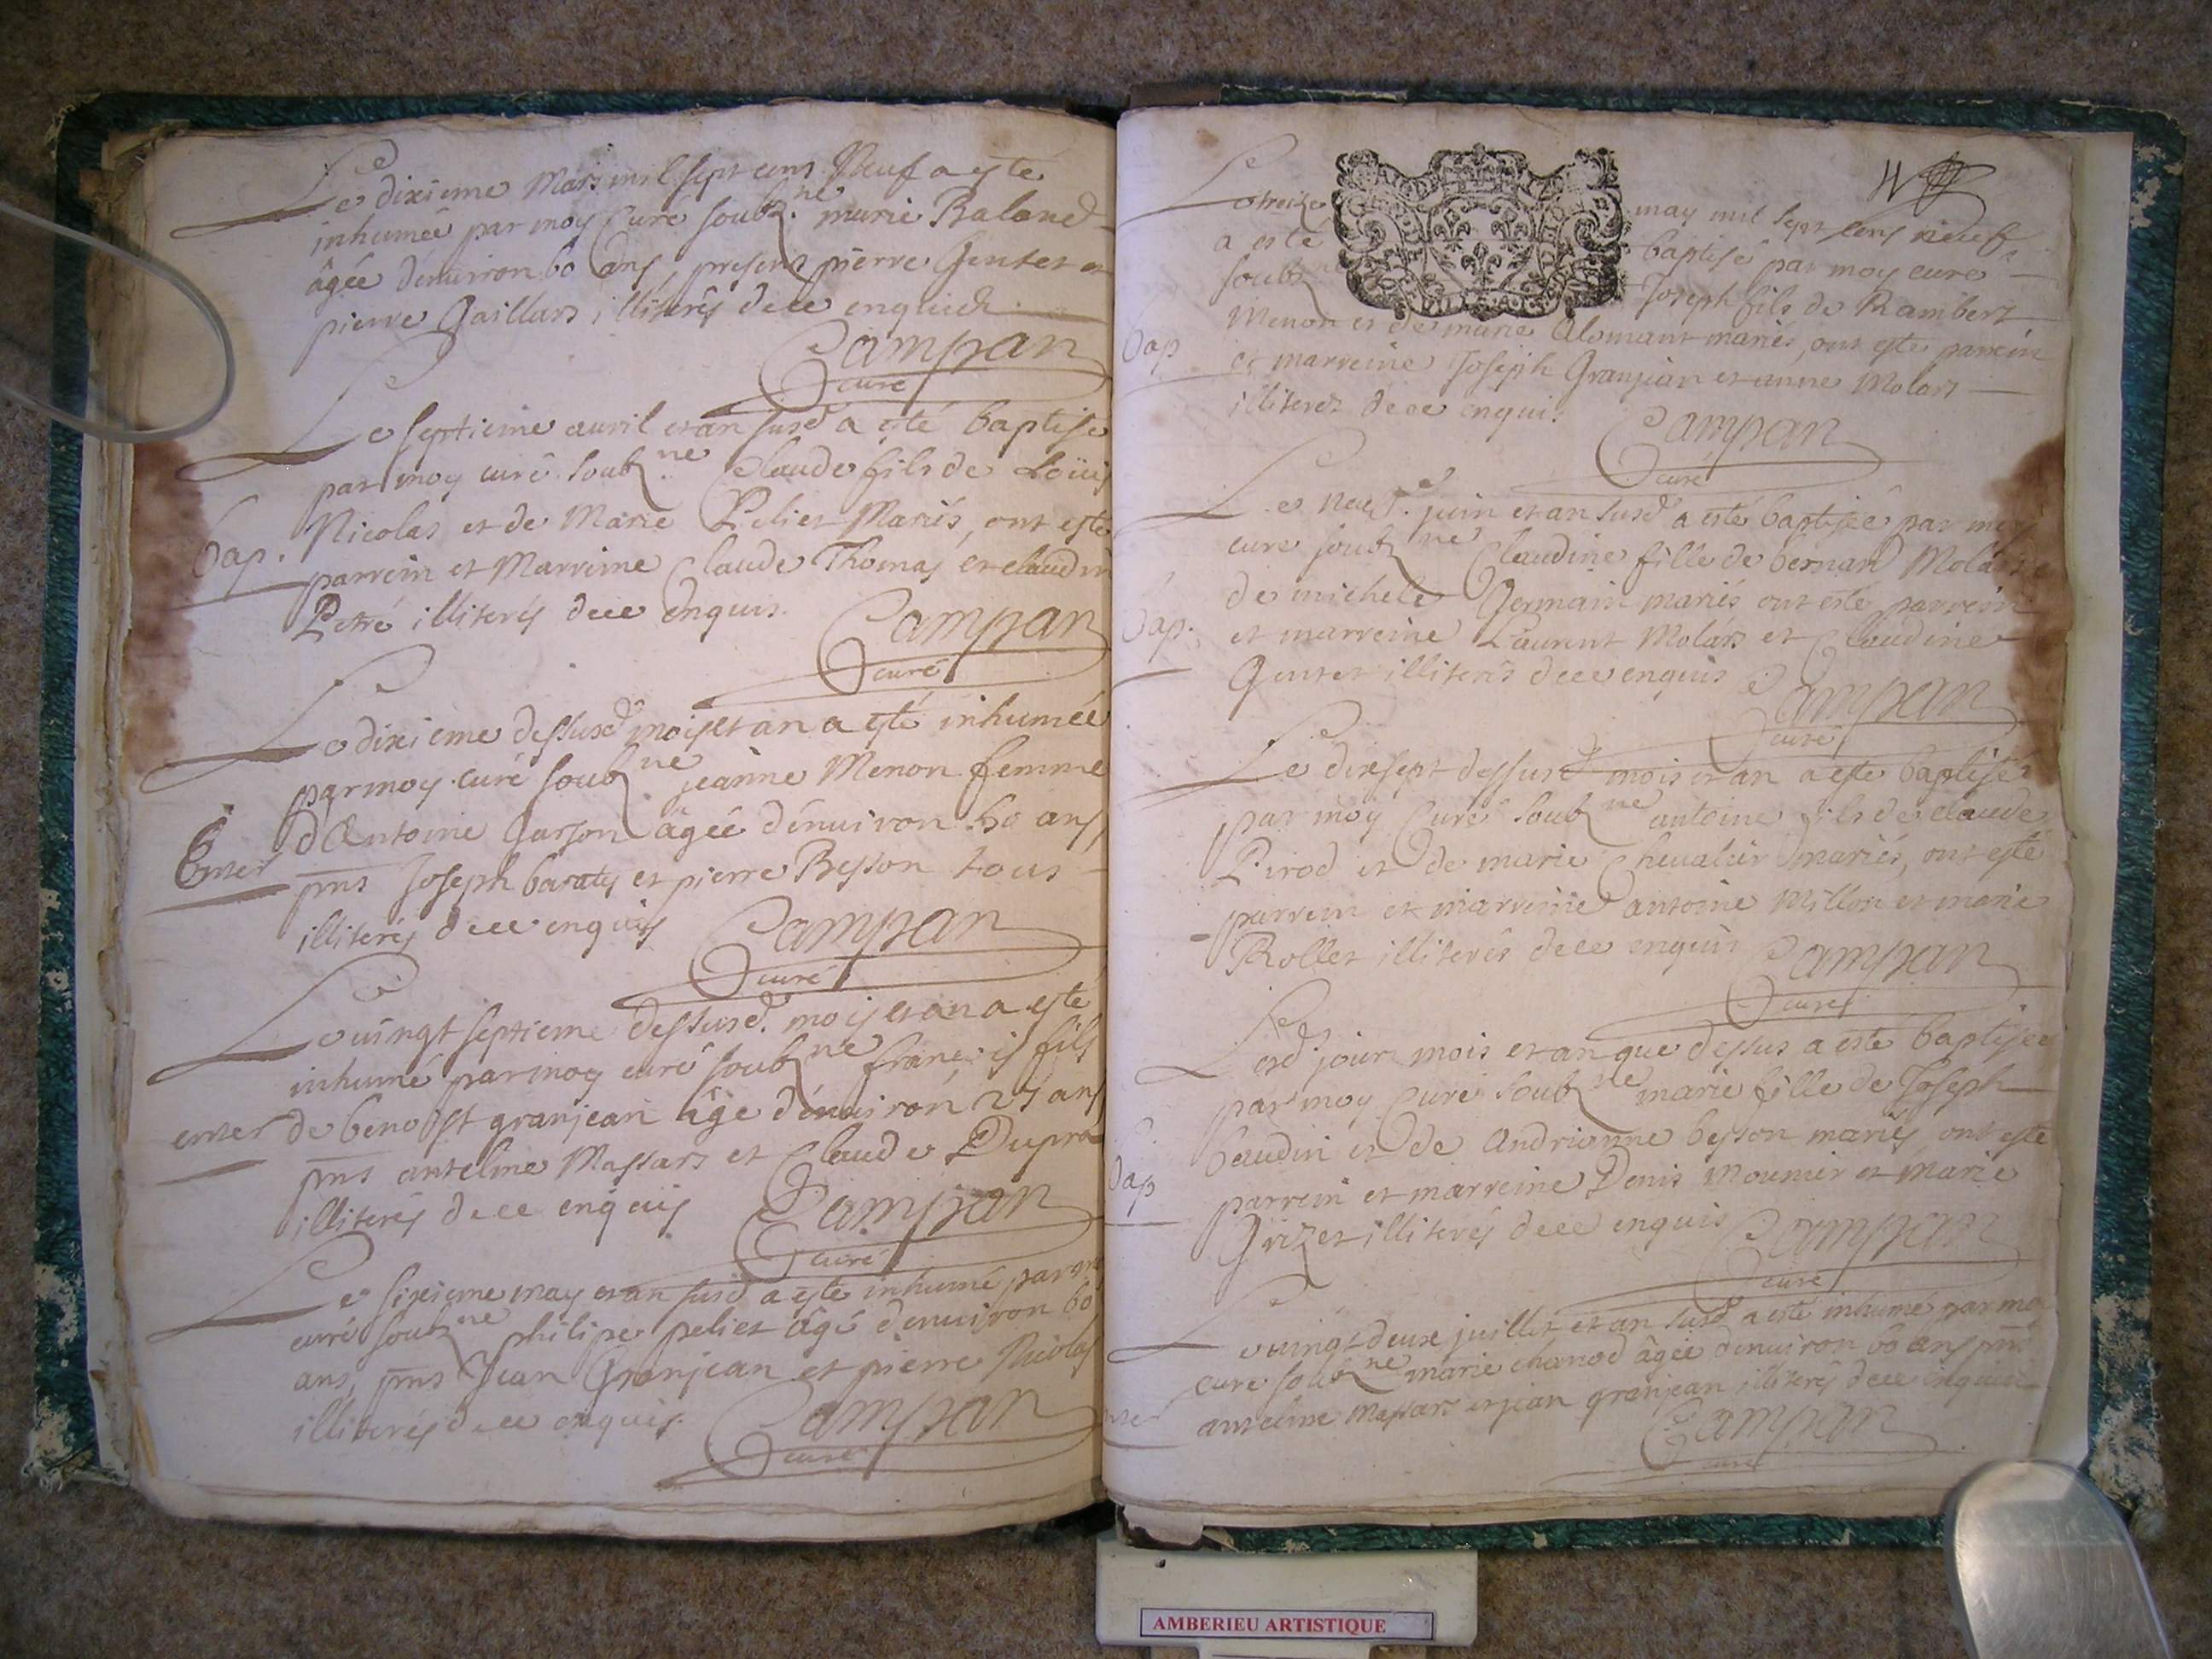 Le dixieme Mars mil sept cens Neuf a este
inhumée par moy Curé soubz.ne marie Baland
âgée d'enuiron 60 ans, presens pierre Gentet et
pierre Gaillars illiterés de ce enquis
Campan
curé
Le septieme auril et an susd a esté baptisé
par moy curé soubz ne Claude fils de Loüis
bap. Nicolas et de Marie Peliet Mariés, ont este
parrein et Marreine Claude Thomas et claudin
Petré illiterés de ce enquis.
Campan
curé
Le dixieme dessusd mois et an a esté inhumée
par moy curé soubz ne jeanne Menon femme
d'Antoine Garson âgée d'enuiron 50 ans
Enter pns Joseph baratis et pierre Besson tous
illiterés de ce enquis Campan
curé
Le uingt septieme dessusd. mois et an a esté
inhumé par moy curé soubz ne françois fils
enter de benoist granjean âge d'enuiron 25 ans
pns antelme Massars et Claude Dupra
illiterés de ce enquis Campan
curé
Le sixieme may et an susd a esté inhumé par moy
curé soubz ne philipe peliet âgé d'enuiron 60
ans, pns Jean Granjean et pierre Nicolas
illiterés de ce enquis. Campan
curé
Le treize may mil sept cens neuf
a esté baptisé par moy cure
soubz ne Joseph fils de Rambert
Menon et de marie Alomant mariés, ont este parrein
bap
et marreine Joseph Granjean et anne Molars
illiterez de ce enqui. Campan
curé
Le neuf.e juin et an susd a esté baptisée par moy
cure soubz ne Claudine fille de bernard Molars
de michele Germain mariés ont esté parrein
bap. et marreine Laurent Molars et Claudine
Gentet illiterés de ce enquis Campan
curé
Le dixsept dessusd mois et an a este baptisé
par moy Curé soubz ne antoine fils de claude
Pirod et de marie Chevalier mariés, ont esté
parrein et marreine antoine Millon et marie
Rollet illiterés de ce enquis Campan
curé
Lesd. jour mois et an que dessus a esté baptisée
par moy Curé soubz ne marie fille de Joseph
beaudin et de Andrienne besson mariés ont este
bap
parrein et marreine Denis Mounier et Marie
Grizet illiterés de ce enquis Campan
curé
Le uingt deux juillet et an susd a esté inhumé par moy
cure soubz ne marie chanod âgée d'enuiron 60 ans pns
enter antelme Massars et jean granjean illiterés de ce enquis
Campan
curé
AMBERIEU ARTISTIQUE